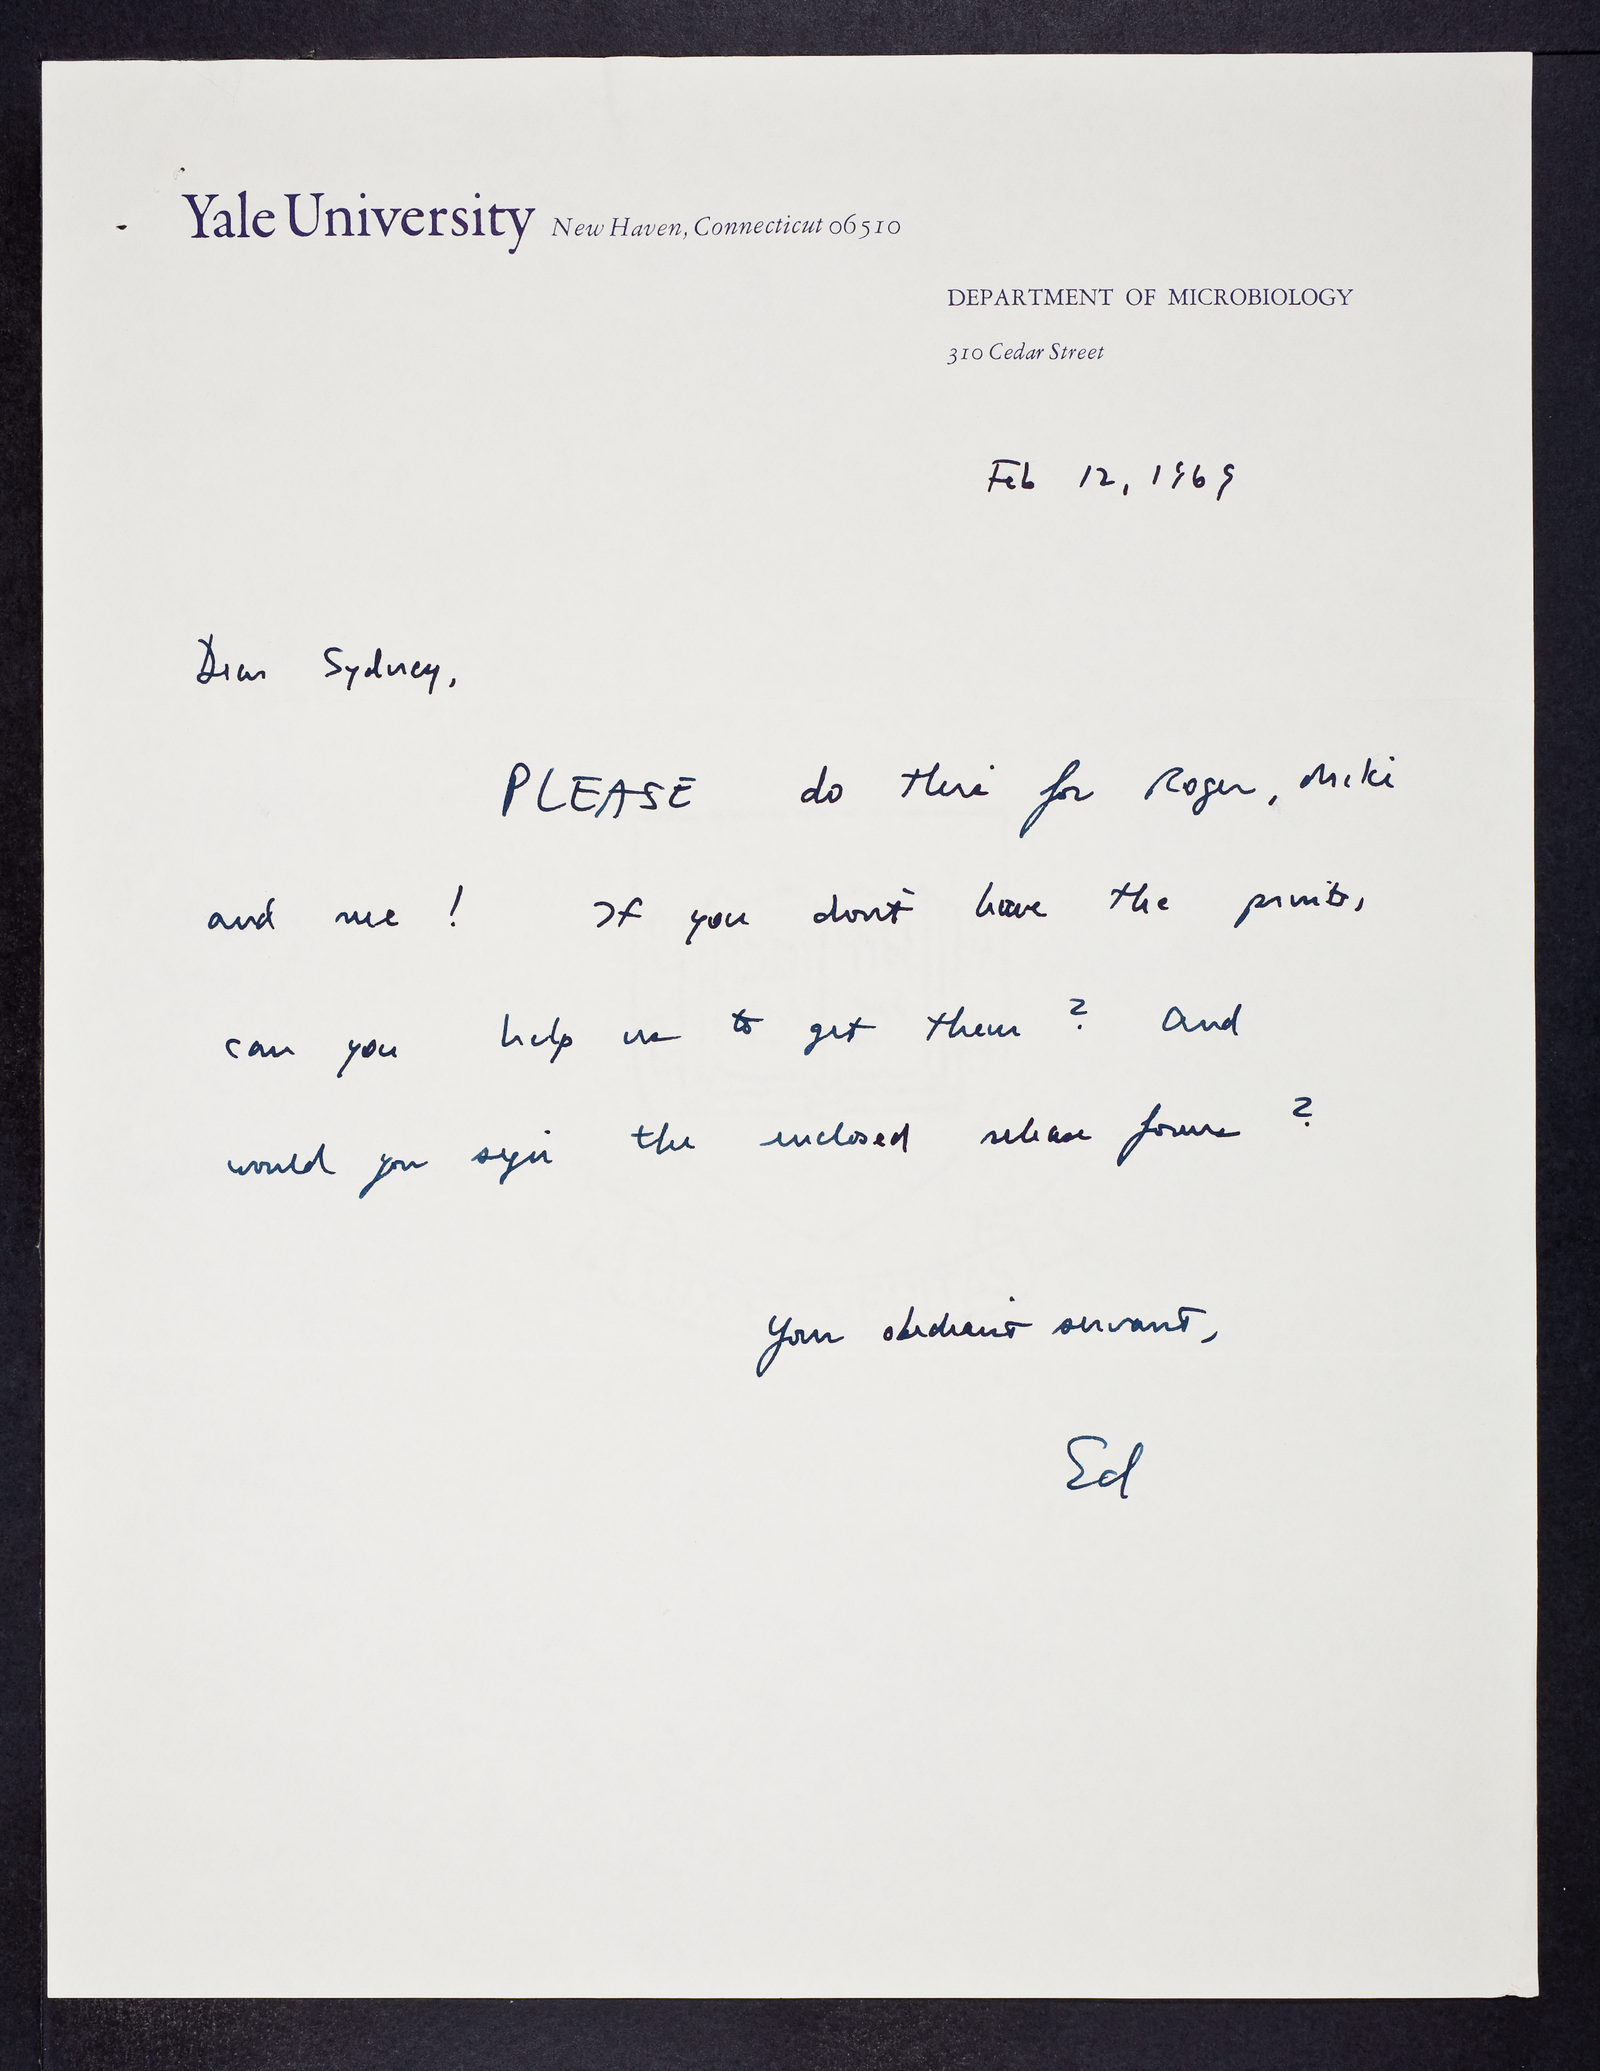 Yale University New Haven, Connecticut 06510
DEPARTMENT OF MICROBIOLOGY
310 Cedar Street
Feb 12, 1969
Dear Sydney,
PLEASE do this for Roger, Miki
and me! If you don't have the prints,
can you help us to get them? And
would you sign the enclosed release forms?
Your obedient servant,
Ed